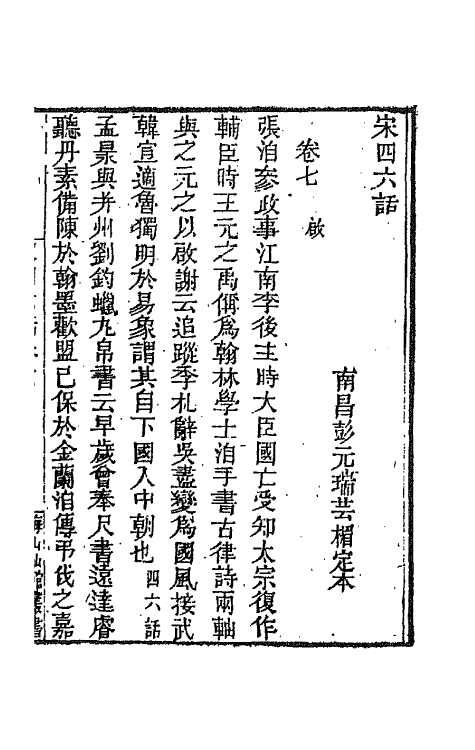 宋四六話
南昌彭元瑞芸楣定本
卷七　啟
張洎參政事江南李後主時大臣國亡受知太宗復作
輔臣時王元之禹偁爲翰林學士洎手書古律詩兩軸
與之元之以啟謝云追蹤季札辭吳盡變爲國風接武
韓宣適魯獨明於易象謂其自下國入中朝也 四六話
孟㫤與并州劉鈞蠟丸帛書云早歲曾奉尺書遠達睿
聽丹素備陳於翰墨歡盟已保於金蘭洎傳弔伐之嘉